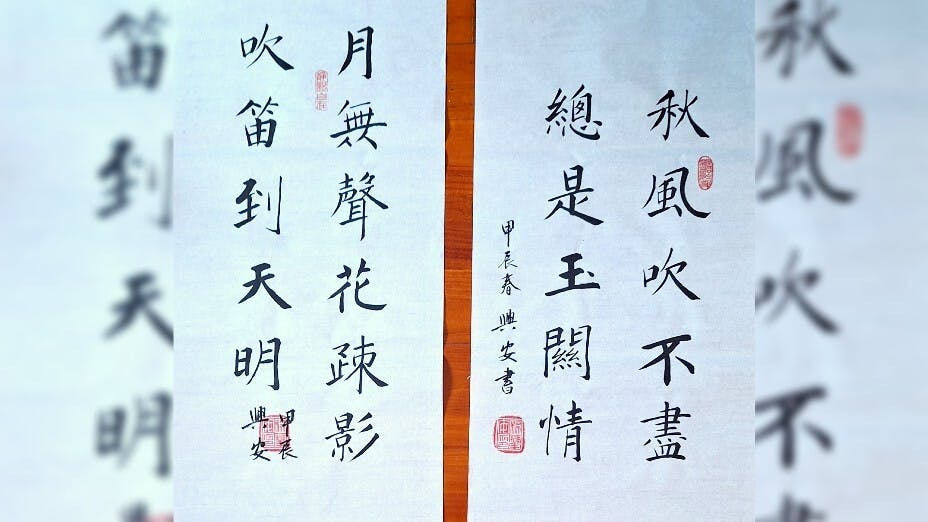 秋風吹不盡
總是玉關情
甲辰春興安書
月無聲花疎影
吹笛到天明
甲辰
興安